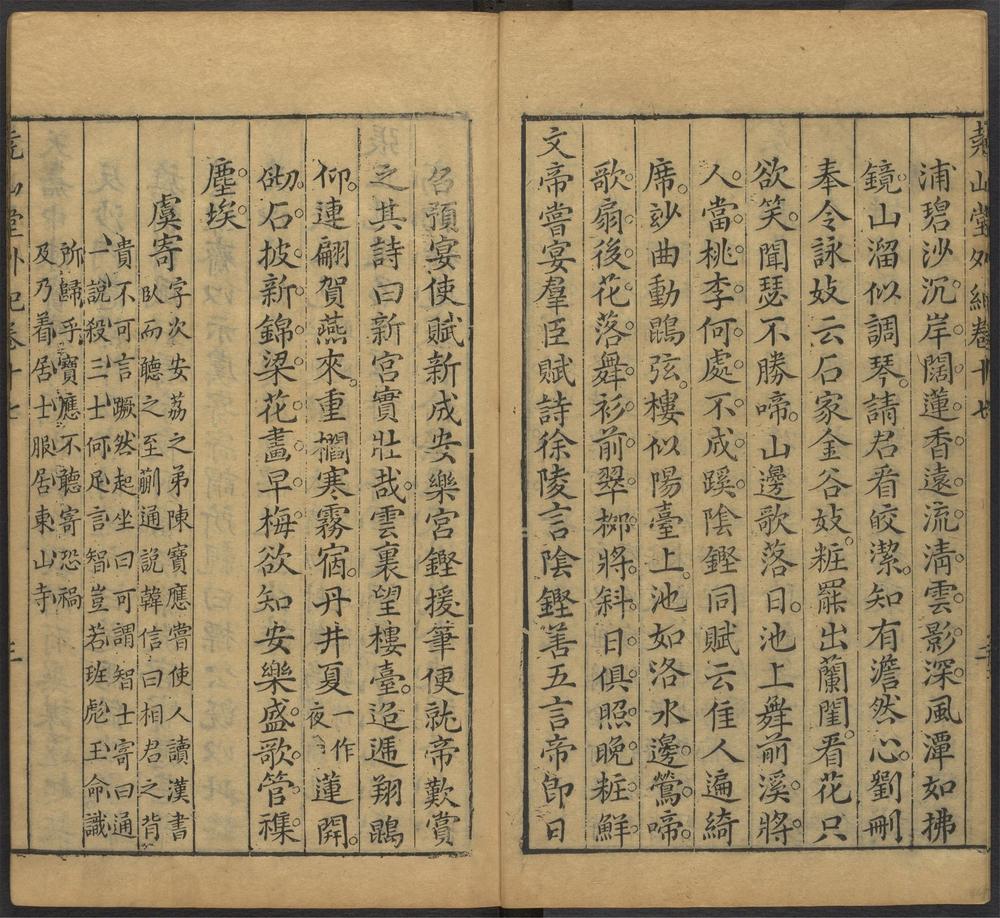 堯山堂外紀卷十七 二
浦碧沙沉岸闊蓮香遠流清雲影深風潭如拂
鏡山溜似調琴請君看皎潔知有澹然心劉刪
奉令詠妓云石家金谷妓粧罷出蘭閨看花只
欲笑聞瑟不勝啼山邊歌落日池上舞前溪將
人當桃李何處不成蹊陰鏗同賦云佳人遍綺
席妙曲動鵾弦樓似陽臺上池如洛水邊鶯啼
歌扇後花落舞衫前翠柳將斜日俱照晚粧鮮
文帝嘗宴羣臣賦詩徐陵言陰鏗善五言帝即日
召預宴使賦新成安樂宮鏗援筆便就帝歎賞
之其詩曰新宮實壯哉雲裏望樓臺迢遞翔鵾
仰連翩賀燕來重櫩寒霧宿丹井夏一作夜蓮開
砌石披新錦梁花畫早梅欲知安樂盛歌管襍
塵埃
虞寄字次安荔之弟陳寶應嘗使人讀漢書
臥而聽之至蒯通說韓信曰相君之背
貴不可言蹶然起坐曰可謂智士寄曰通
一說殺三士何足言智豈若班彪王命識
所歸乎寶應不聽寄恐禍
及乃着居士服居東山寺
堯山堂外紀卷十七 三